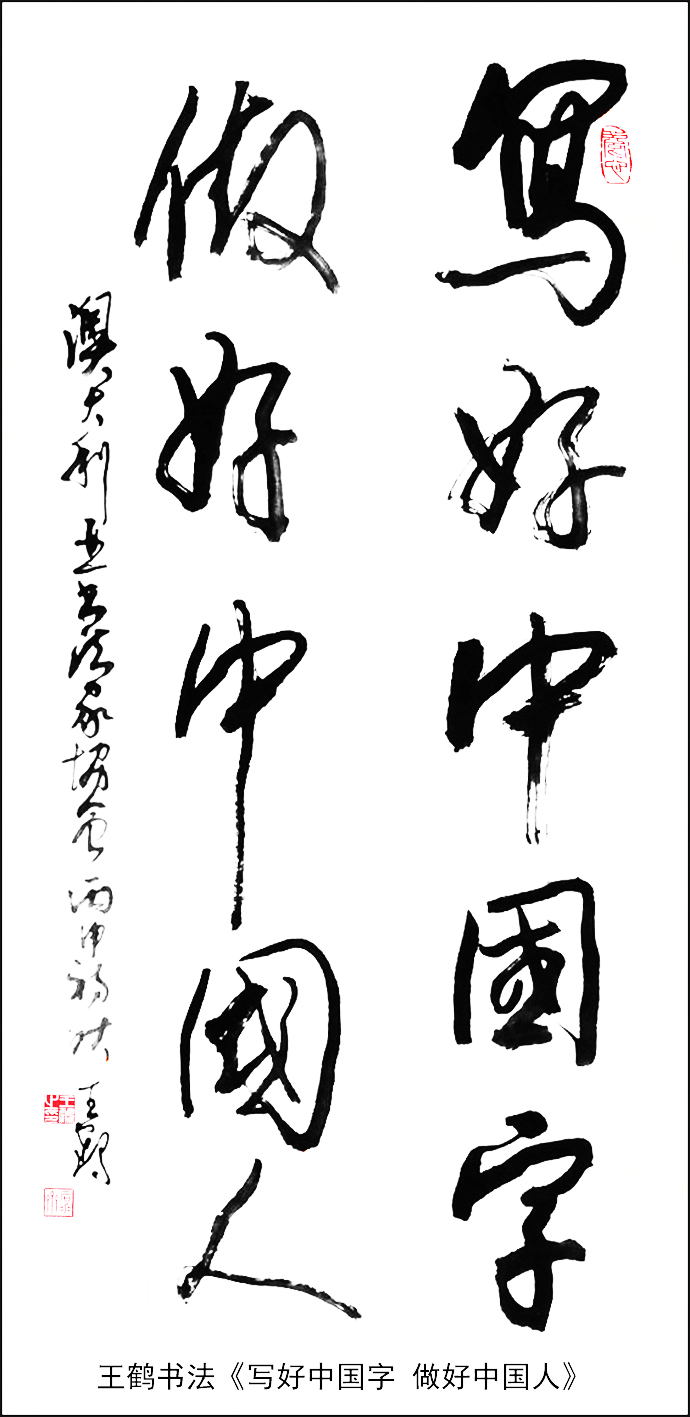 寫好中國字
做好中國人
澳大利亚书法家协会 丙申福陕 王鹤
王鹤书法《写好中国字 做好中国人》